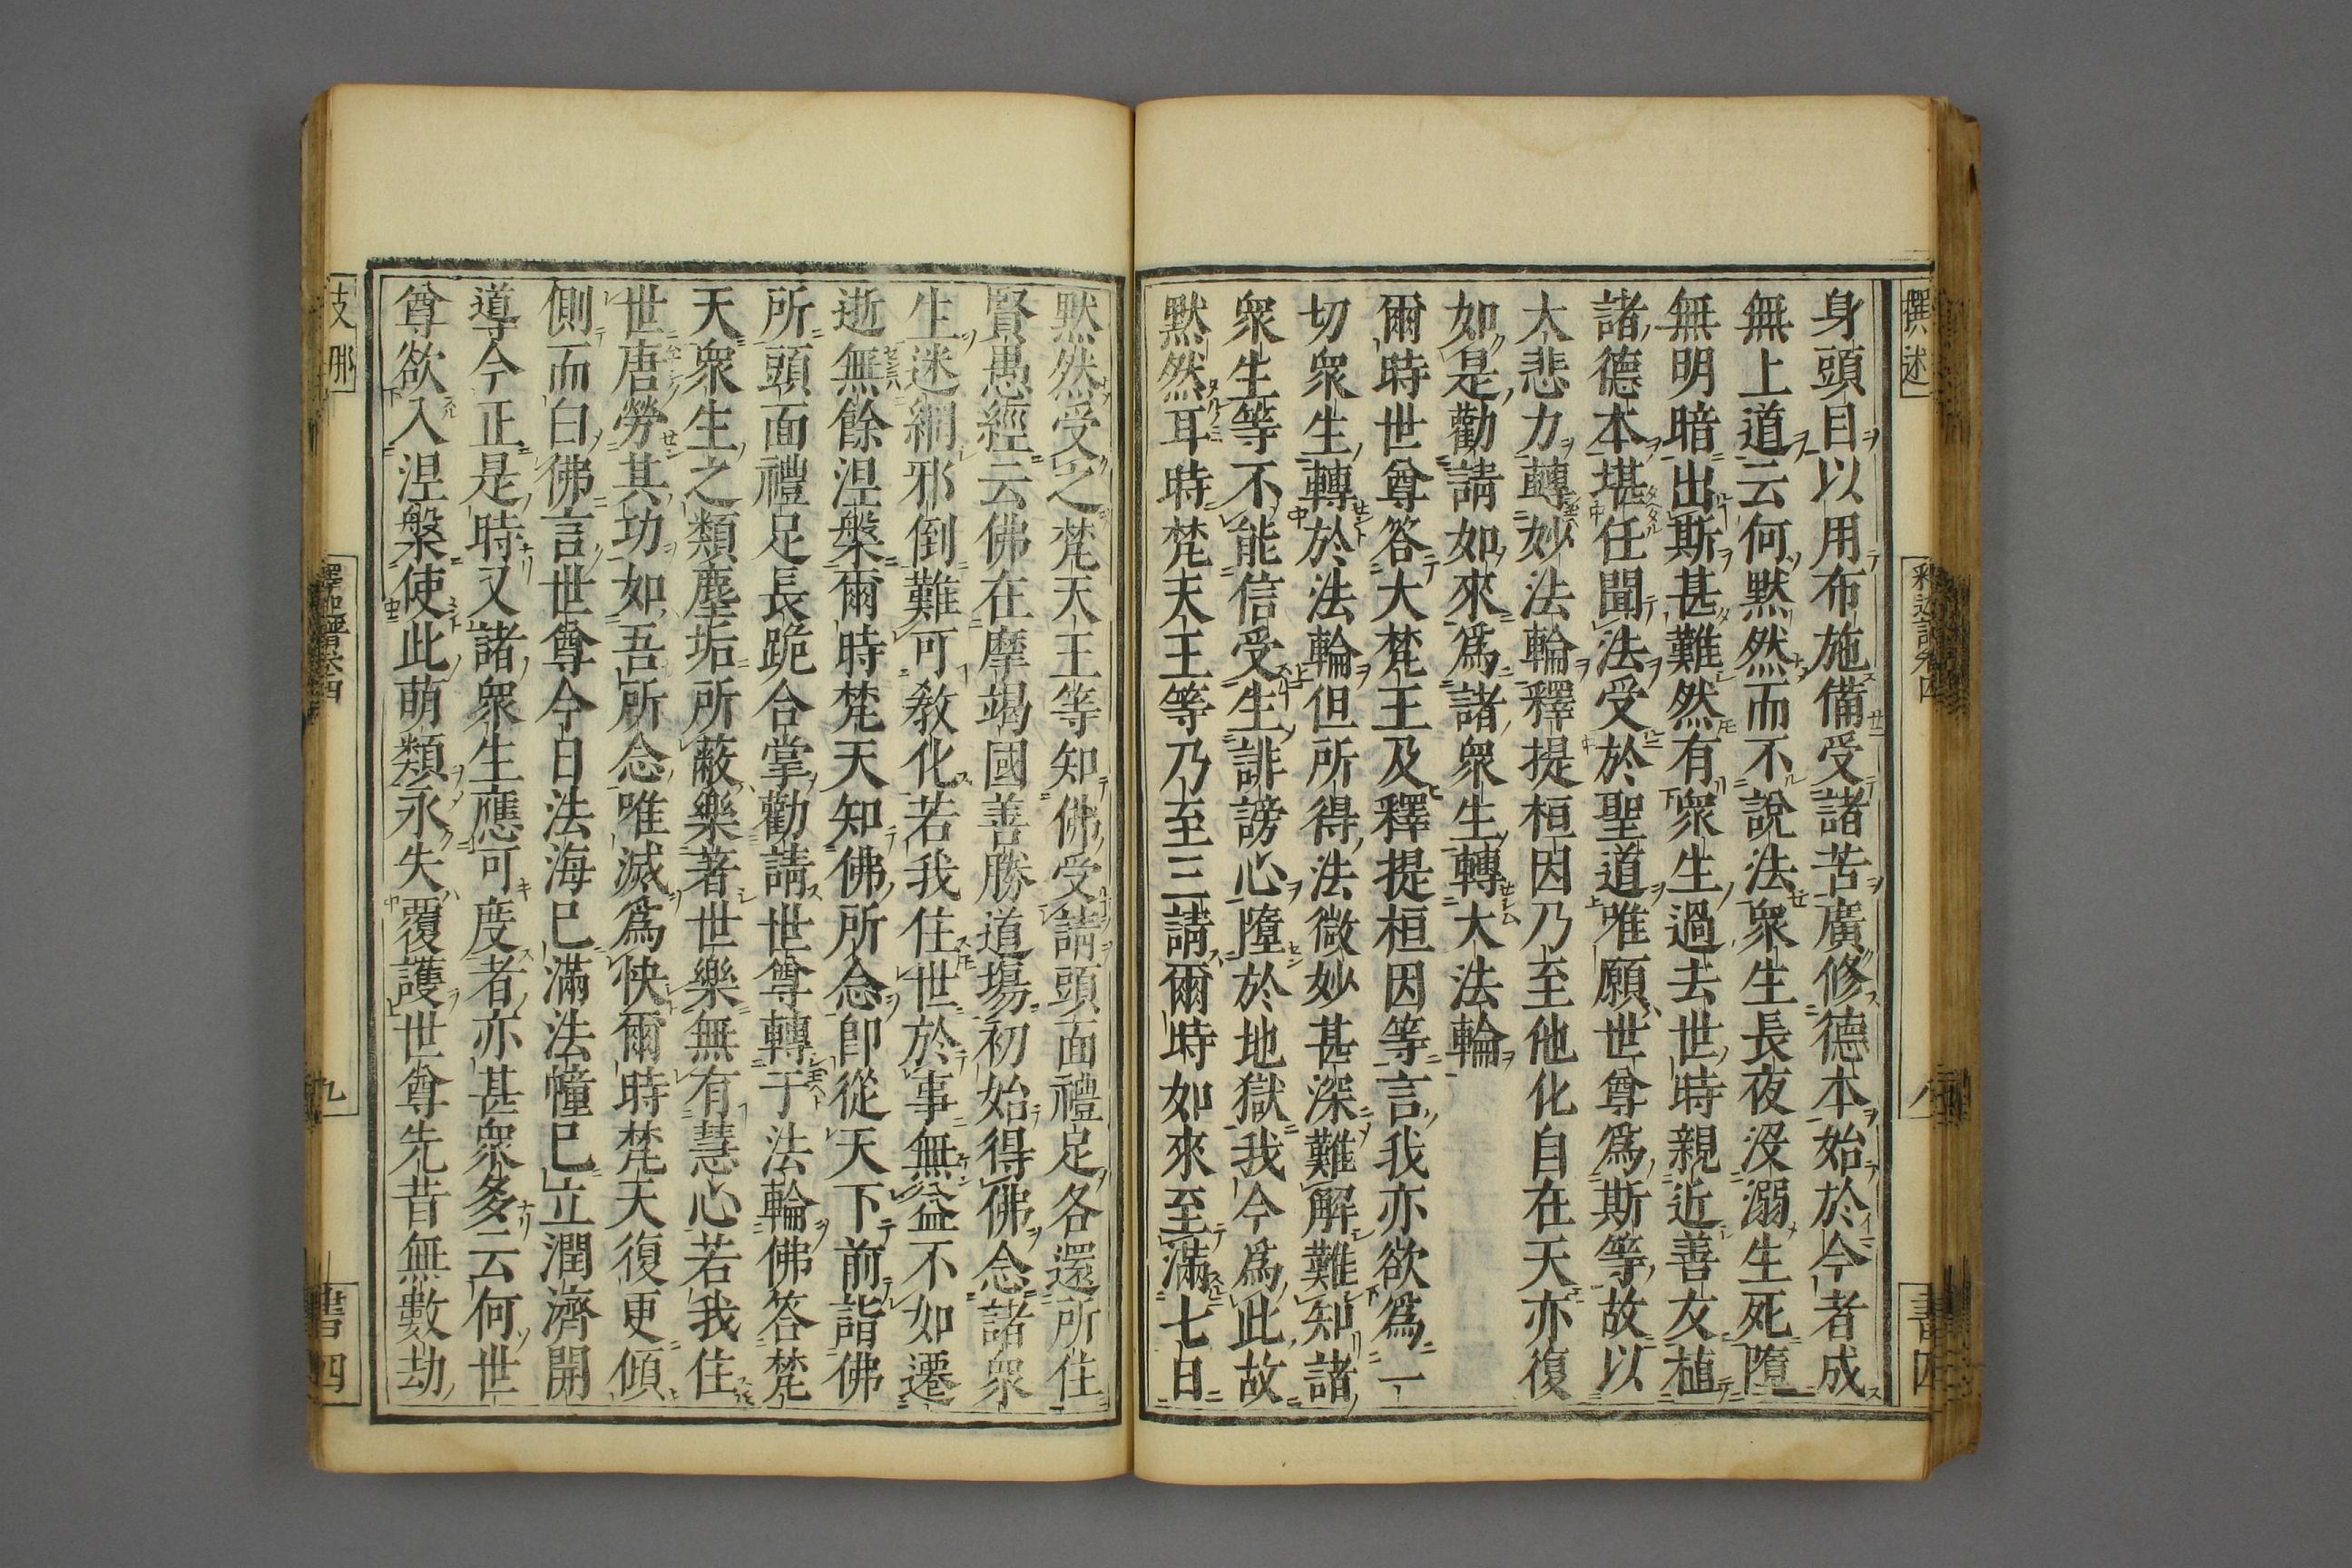 撰述
釈迦譜卷四
八
書四
身頭目以用布施備受諸苦廣修德本始於今者成
無上道云何默然而不說法衆生長夜沒溺生死墮
無明暗出斯甚難然有衆生過去世時親近善友植
諸德本堪任聞法受於聖道唯願世尊爲斯等故以
大悲力轉妙法輪釋提桓因乃至他化自在天亦復
如是勸請如來爲諸衆生轉大法輪
爾時世尊答大梵王及釋提桓因等言我亦欲爲一
切衆生轉於法輪但所得法微妙甚深難解難知諸
衆生等不能信受生誹謗心墮於地獄我今爲此故
默然耳時梵天王等乃至三請爾時如來至滿七日
默然受之梵天王等知佛受請頭面禮足各還所住
賢愚經云佛在摩竭國善勝道場初始得佛念諸衆
生迷網邪倒難可敎化若我住世於事無益不如遷
逝無餘涅槃爾時梵天知佛所念卽從天下前詣佛
所頭面禮足長跪合掌勸請世尊轉于法輪佛答梵
天衆生之類塵垢所蔽樂著世樂無有慧心若我住
世唐勞其功如吾所念唯滅爲快爾時梵天復更傾
側而白佛言世尊今日法海已滿法幢已立潤濟開
導今正是時又諸衆生應可度者亦甚衆多云何世
尊欲入涅槃使此萌類永失覆護世尊先昔無數劫
支那
九
書四